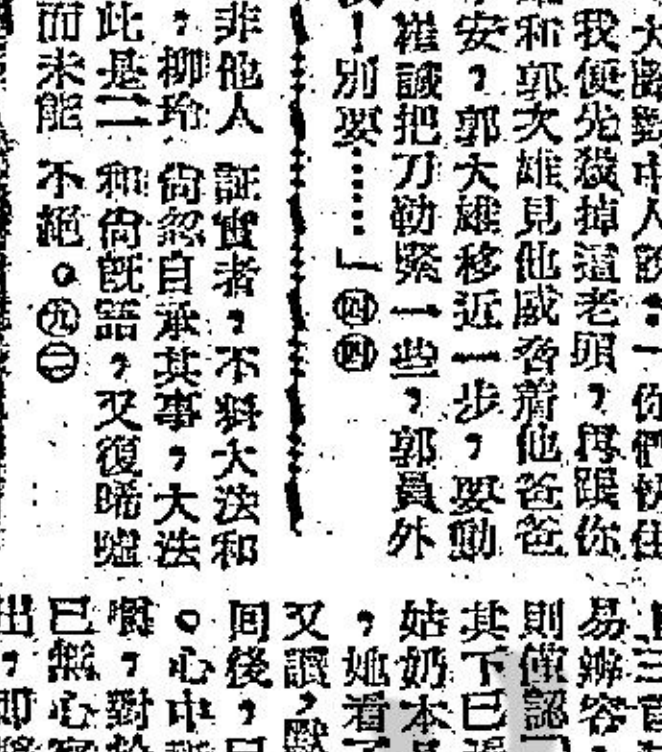 對中人說：「你們快住
我便先殺掉這老頭，再跟你
和郭次雄見他威脅着他爸爸
安，郭大雄移近一步，要動
崔誠把刀勒緊一些，郭員外
！別要……」㊃㊃
非他人　証實者，不料大法和
，柳玲　尙忽自承其事，大法
此是二　和尙旣語，又復唏噓
而未能　不絕。㊈㊁
易辨容
則僅認
其下已
姑奶本
，她看
又讀，
間後，
。心中
，對
已無心
出，即